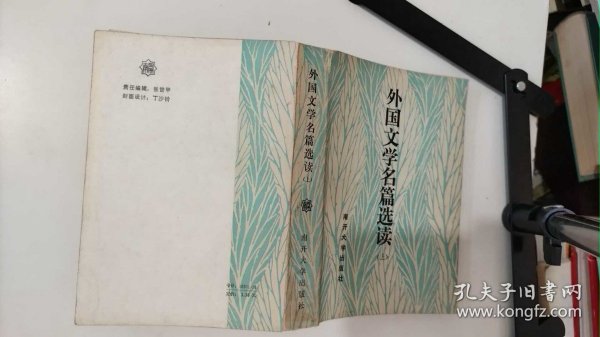 责任编辑：张世甲
封面设计：丁沙铃
外国文学名篇选读
（上）
南开大学出版社
外国文学名篇选读
〈上〉
南开大学出版社
孔夫子旧书网
www.kongfz.com